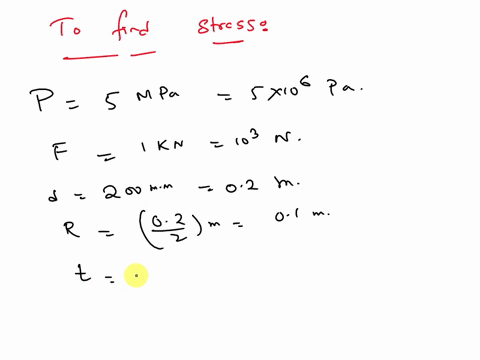 To find stress:
P = 5 MPa = 5×10⁶ Pa.
F = 1 KN = 10³ N.
d = 200 m.m = 0.2 m.
R = (0.2/2) m = 0.1 m.
t = .